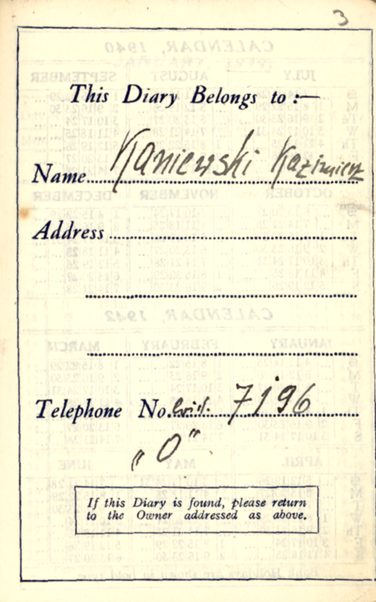 3
This Diary Belongs to :—
Name Kaniewski Kazimierz
Address
Telephone No. 7196
„O”
If this Diary is found, please return
to the Owner addressed as above.